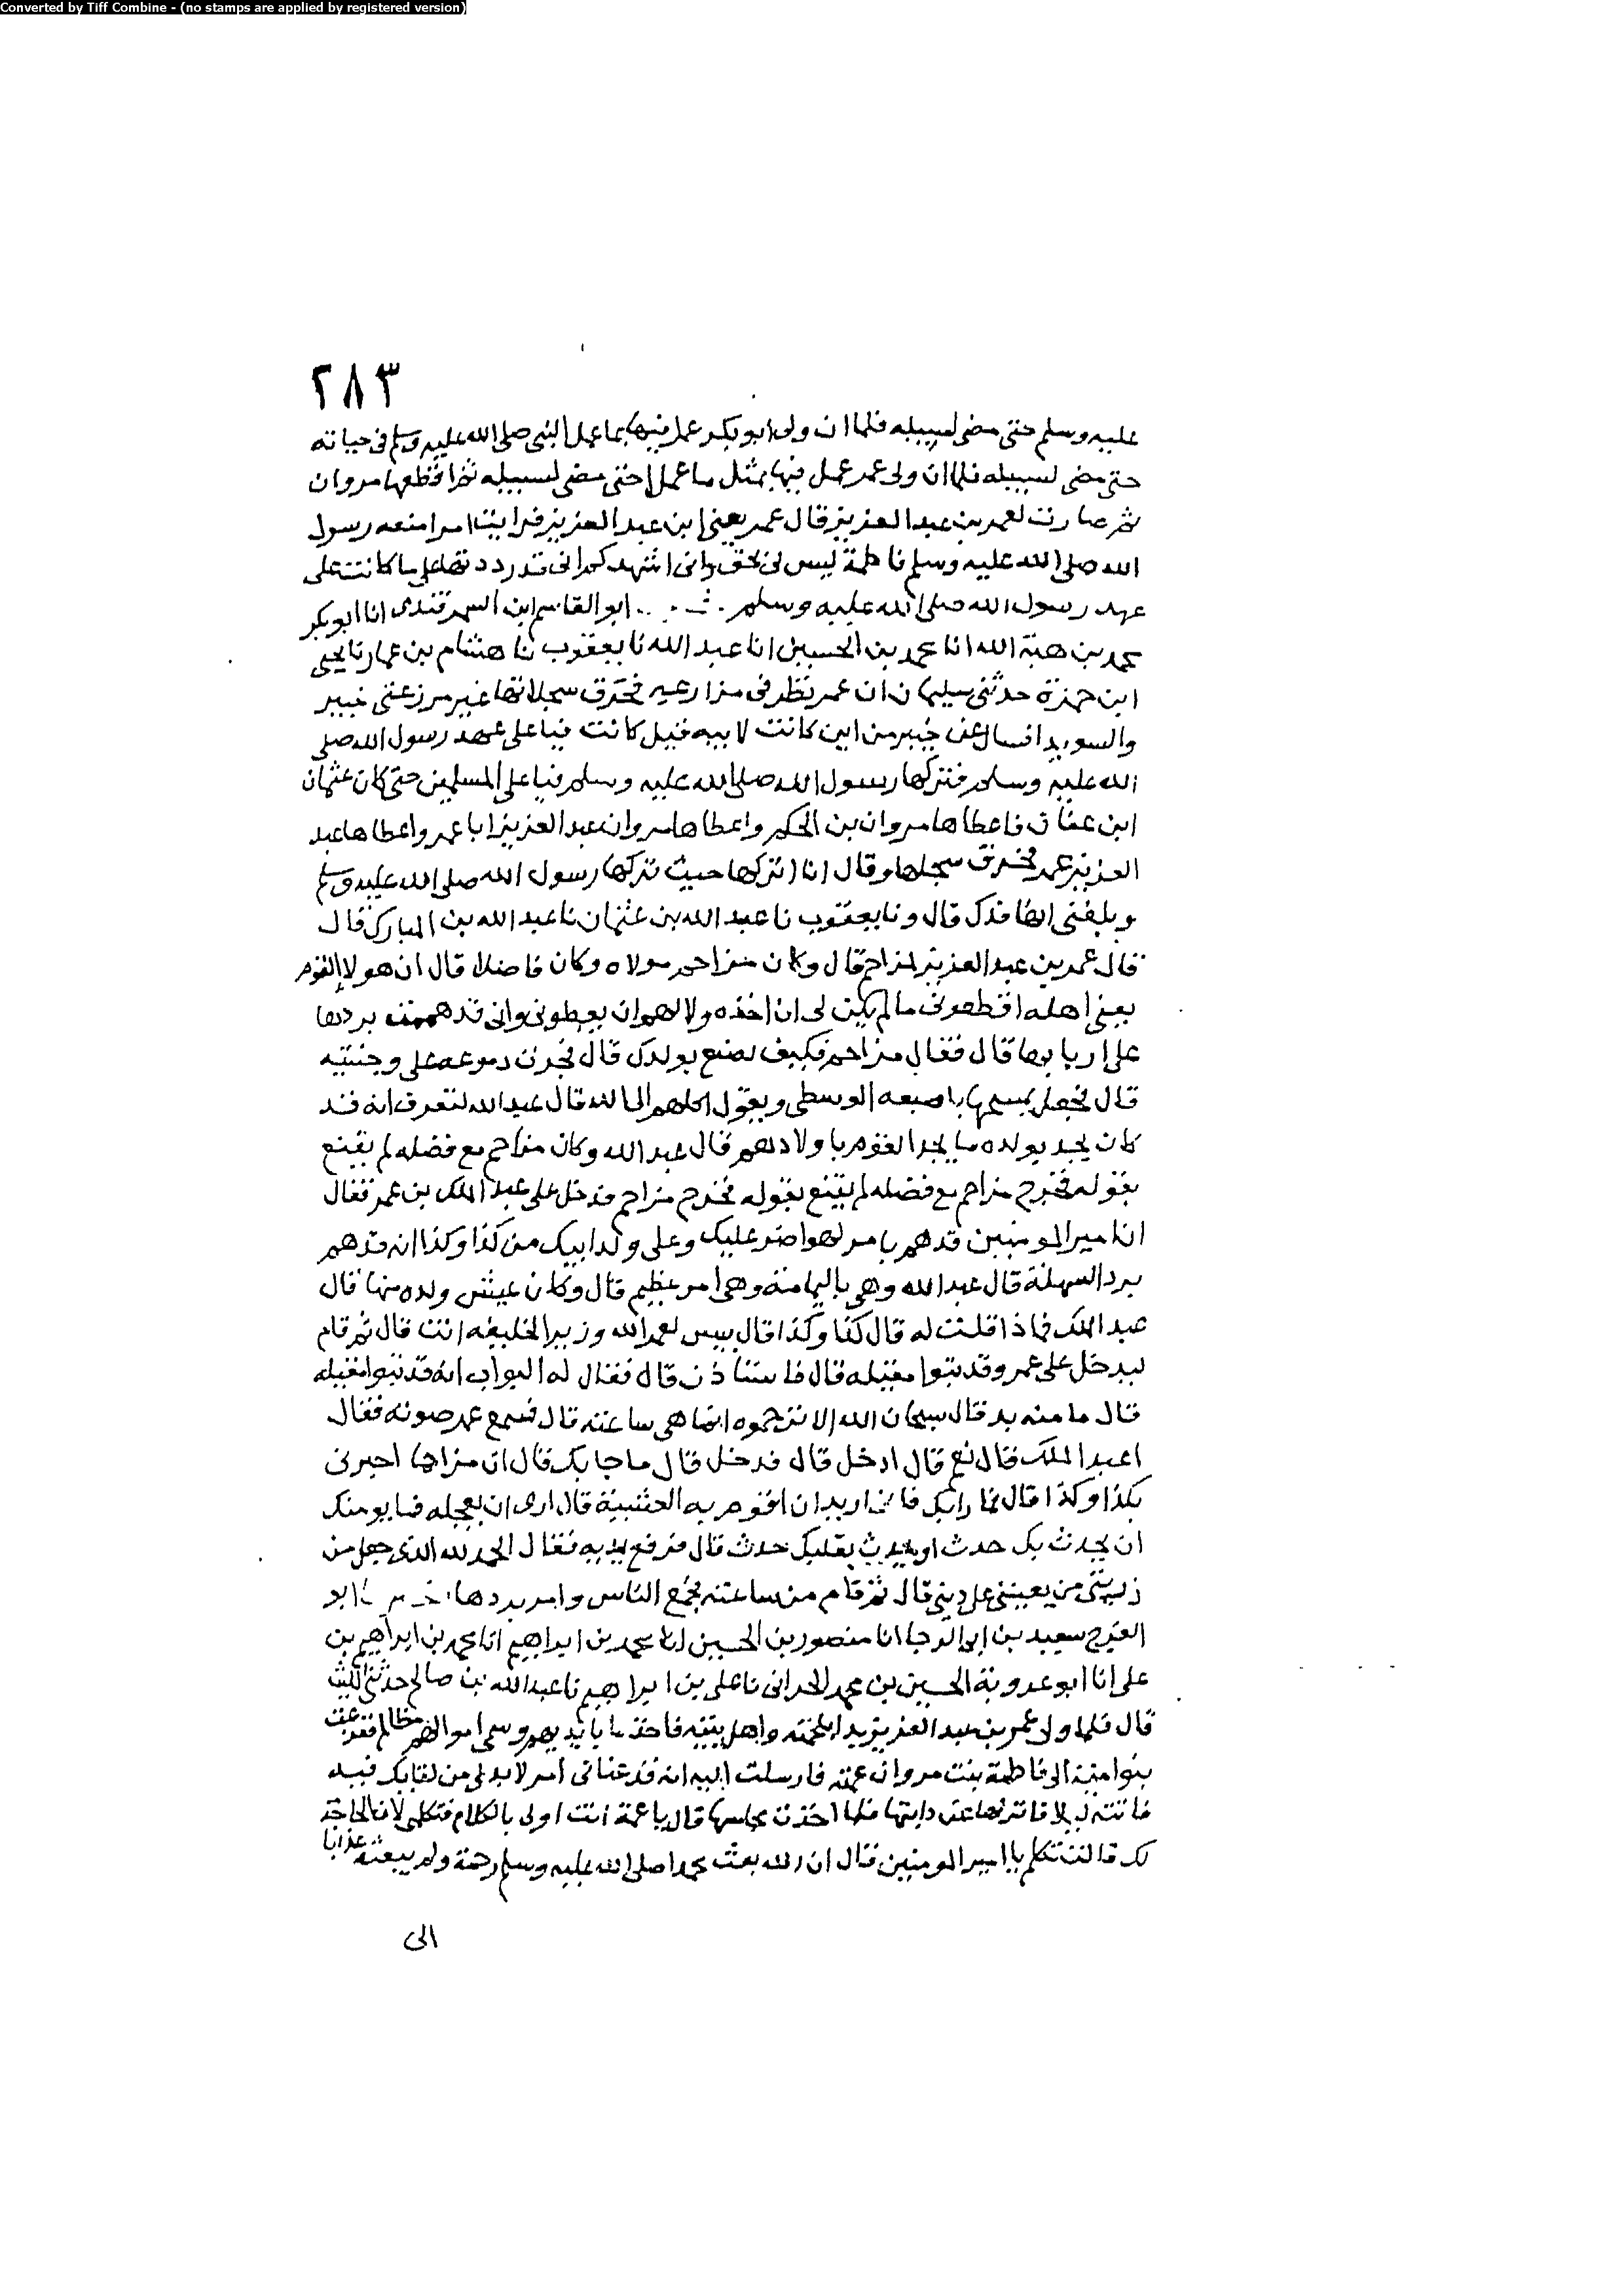 Converted by Tiff Combine - (no stamps are applied by registered version)
٢٨٣
عليه وسلم حتى مضى لسبيله فلما ان ولى ابو بكر عمل فيها بما عمل النبي صلى الله عليه وسلم في حياته
حتى مضى لسبيله فلما ان ولى عمر عمل فيها بمثل ما عملا حتى مضى لسبيله ثم اقطعها مروان
ثم صارت لعمر بن عبد العزيز قال عمر يعني ابن عبد العزيز فرايت امرا منعه رسول
الله صلى الله عليه وسلم فاطمة ليس لي بحق واني اشهدكم اني قد رددتها على ما كانت على
عهد رسول الله صلى الله عليه وسلم ابو القاسم ابن السمرقندي انا ابو بكر
محمد بن هبة الله انا محمد بن الحسين انا عبد الله نا يعقوب نا هشام بن عمار نا يحيى
ابن حمزة حدثني سليمان ان عمر نظر في مزارعه فخرق سجلاتها غير مزرعتي خيبر
والسويدا فسال عن خيبر من اين كانت لابيه قيل كانت فيا على عهد رسول الله صلى
الله عليه وسلم فتركها رسول الله صلى الله عليه وسلم فيا على المسلمين حتى كان عثمان
ابن عفان فاعطاها مروان بن الحكم واعطاها مروان عبد العزيز ابا عمر واعطاها عبد
العزيز عمر فخرق سجلها وقال انا اتركها حيث تركها رسول الله صلى الله عليه وسلم
وبلغني انها فدك قال ونا يعقوب نا عبد الله بن عثمان نا عبد الله بن المبارك قال
قال عمر بن عبد العزيز لمزاحم قال وكان مزاحم مولاه وكان فاضلا قال ان هولا القوم
يعني اهله اقطعوني ما لم يكن لي ان اخذه ولا لهم ان يعطوني واني قد هممت بردها
على اربابها قال فقال مزاحم فكيف تصنع بولدك قال فجرت دموعه على وجنتيه
قال فجعل يمسحها باصبعه الوسطى ويقول اكلهم الى الله قال عبد الله لتعرف انه قد
كان يجد بولده ما يجد القوم باولادهم قال عبد الله وكان مزاحم مع فضله لم يقنع
بقوله فخرج مزاحم مع فضله لم يقنع بقوله فخرج مزاحم فدخل على عبد الملك بن عمر فقال
ان امير المومنين قد هم بامر لهو اضر عليك وعلى ولد ابيك من كذا وكذا انه قد هم
برد السهلة قال عبد الله وهي باليمامة وهي امر عظيم قال وكان عيش ولده منها قال
عبد الملك فماذا قلت له قال كذا وكذا قال بيس لعمر الله وزير الخليفه انت قال ثم قام
ليدخل على عمر وقد تبوا مقيله قال فاستاذن قال فقال له البواب انه قد تبوا مقيله
قال ما منه بد قال سبحان الله الا ترحموه انما هي ساعته قال فسمع عمر صوته فقال
اعبد الملك فقال نعم قال ادخل قال فدخل قال ما جا بك قال ان مزاحما اخبرني
بكذا وكذا قال فما رايك فاني اريد ان اقوم به العشية قال ارى ان تعجله فما يومنك
ان يحدث بك حدث او يحدث بقلبك حدث قال فرفع يديه فقال الحمد لله الذي جعل من
ذريتي من يعينني على ديني قال ثم قام من ساعته فجمع الناس وامر بردها ابو
الفرج سعيد بن ابي الرجا انا منصور بن الحسين انا محمد بن ابراهيم انا محمد بن ابراهيم بن
علي انا ابو عروبة الحسين بن محمد الحراني نا علي بن ابراهيم نا عبد الله بن صالح حدثني الليث
قال فلما ولى عمر بن عبد العزيز بدا بلحمته واهل بيته فاخذ ما بايديهم وسمى اموالهم مظالم ففزعت
بنو امية الى فاطمة بنت مروان عمته فارسلت اليه انه قد عناني امر لا بد لي من لقايك فيه
فاتته ليلا فانزلها عن دابتها فلما اخذت مجلسها قال يا عمة انت اولى بالكلام فتكلمي لان الحاجة
لك قالت تكلم يا امير المومنين فقال ان الله بعث محمدا صلى الله عليه وسلم رحمة ولم يبعثه عذابا
الى